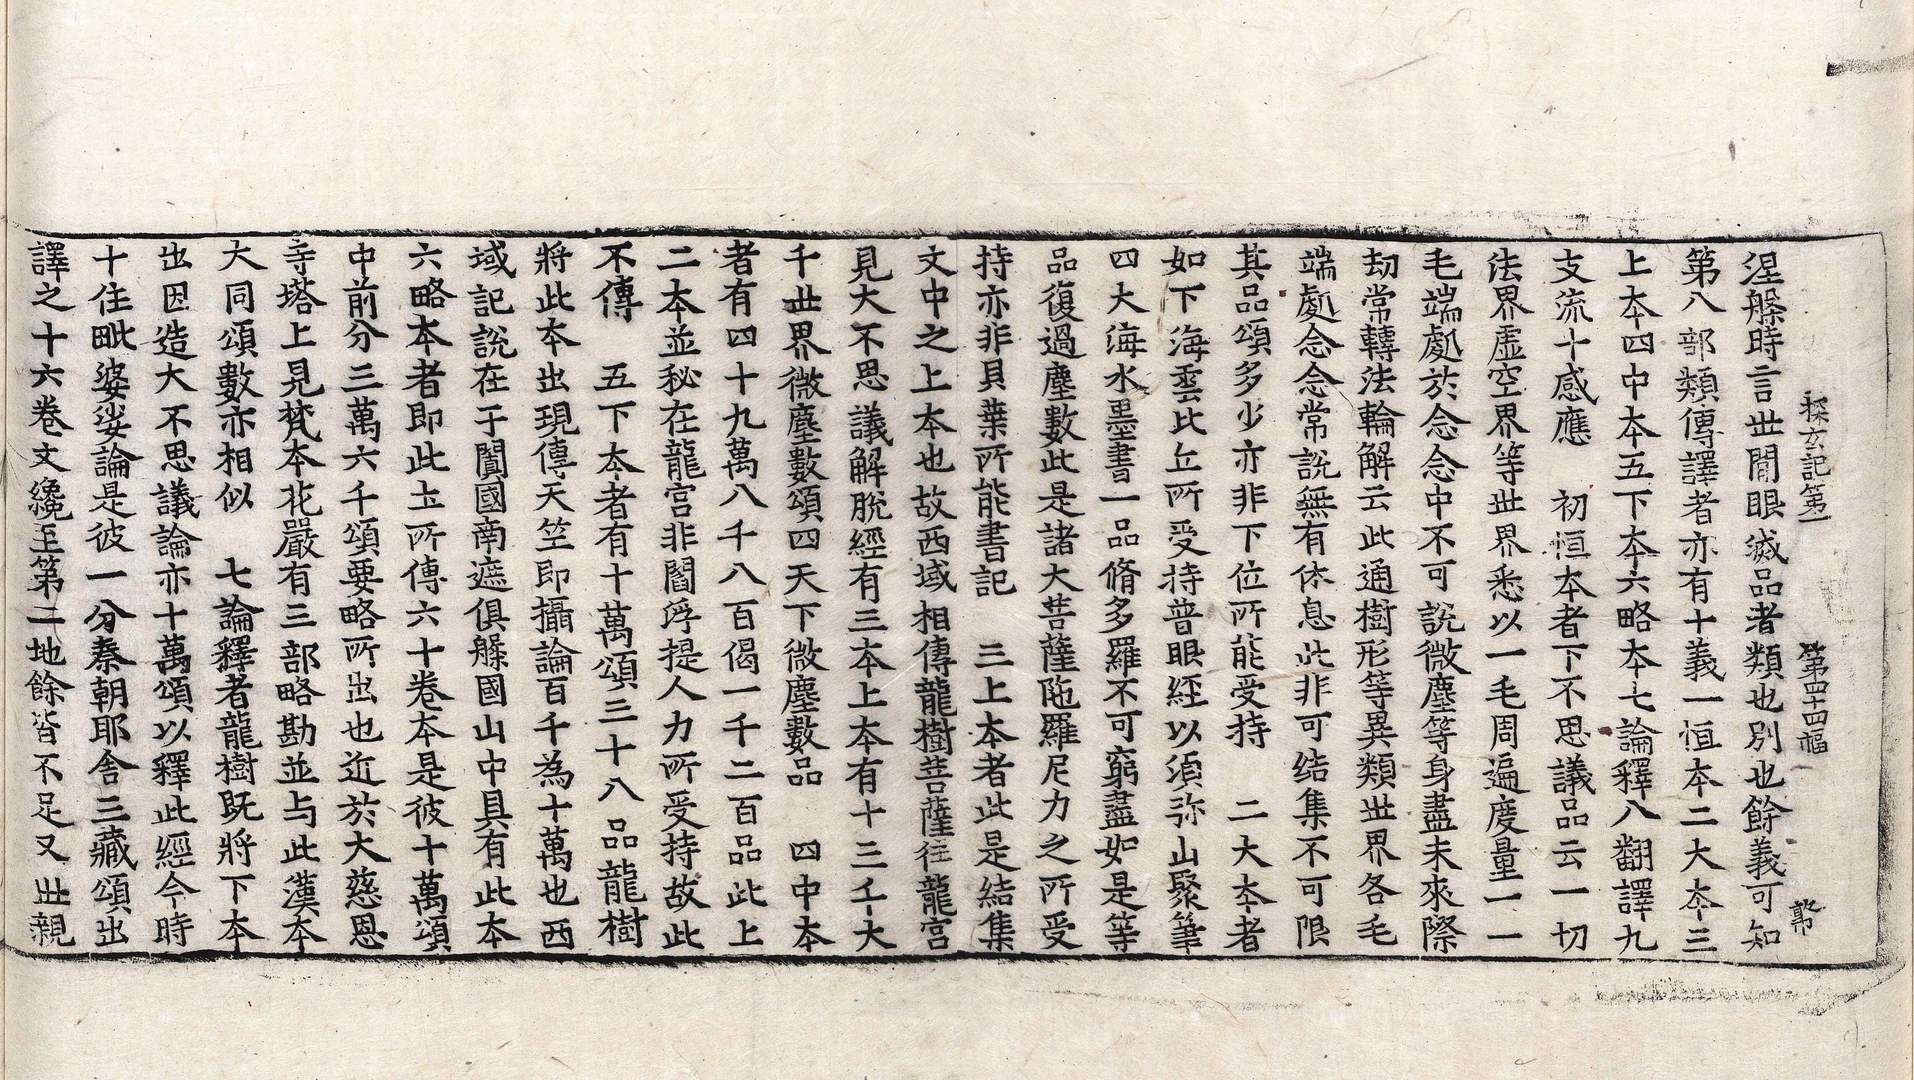 探玄記第一　第四十四幅　郭
涅槃時言世間眼滅品者類也別也餘義可知
第八部類傳譯者亦有十義一恒本二大夲三
上本四中本五下夲六略本七論釋八翻譯九
支流十感應　初恒本者下不思議品云一切
法界虛空界等世界悉以一毛周遍度量一一
毛端處於念念中不可說微塵等身盡未來際
劫常轉法輪解云此通樹形等異類世界各毛
端處念念常說無有休息此非可结集不可限
其品頌多少亦非下位所能受持　二大夲者
如下海雲比丘所受持普眼経以須弥山聚筆
四大海水墨書一品脩多羅不可窮盡如是等
品復過塵數此是諸大菩薩陁羅尼力之所受
持亦非貝葉所能書記　三上本者此是结集
文中之上本也故西域相傳龍樹菩薩往龍宮
見大不思議解脫經有三本上本有十三千大
千世界微塵數頌四天下微塵數品　四中本
者有四十九萬八千八百偈一千二百品此上
二本並秘在龍宮非閻浮提人力所受持故此
不傳　五下本者有十萬頌三十八品龍樹
將此本出現傳天竺即攝論百千為十萬也西
域記說在于闐國南遮俱槃國山中具有此本
六略本者即此土所傳六十卷本是彼十萬頌
中前分三萬六千頌要略所出也近於大慈恩
寺塔上見梵本花嚴有三部略勘並与此漢本
大同頌數亦相似　七論釋者龍樹既將下本
出因造大不思議論亦十萬頌以釋此經今時
十住毗婆娑論是彼一分秦朝耶舍三藏頌出
譯之十六卷文纔至第二地餘皆不足又世親